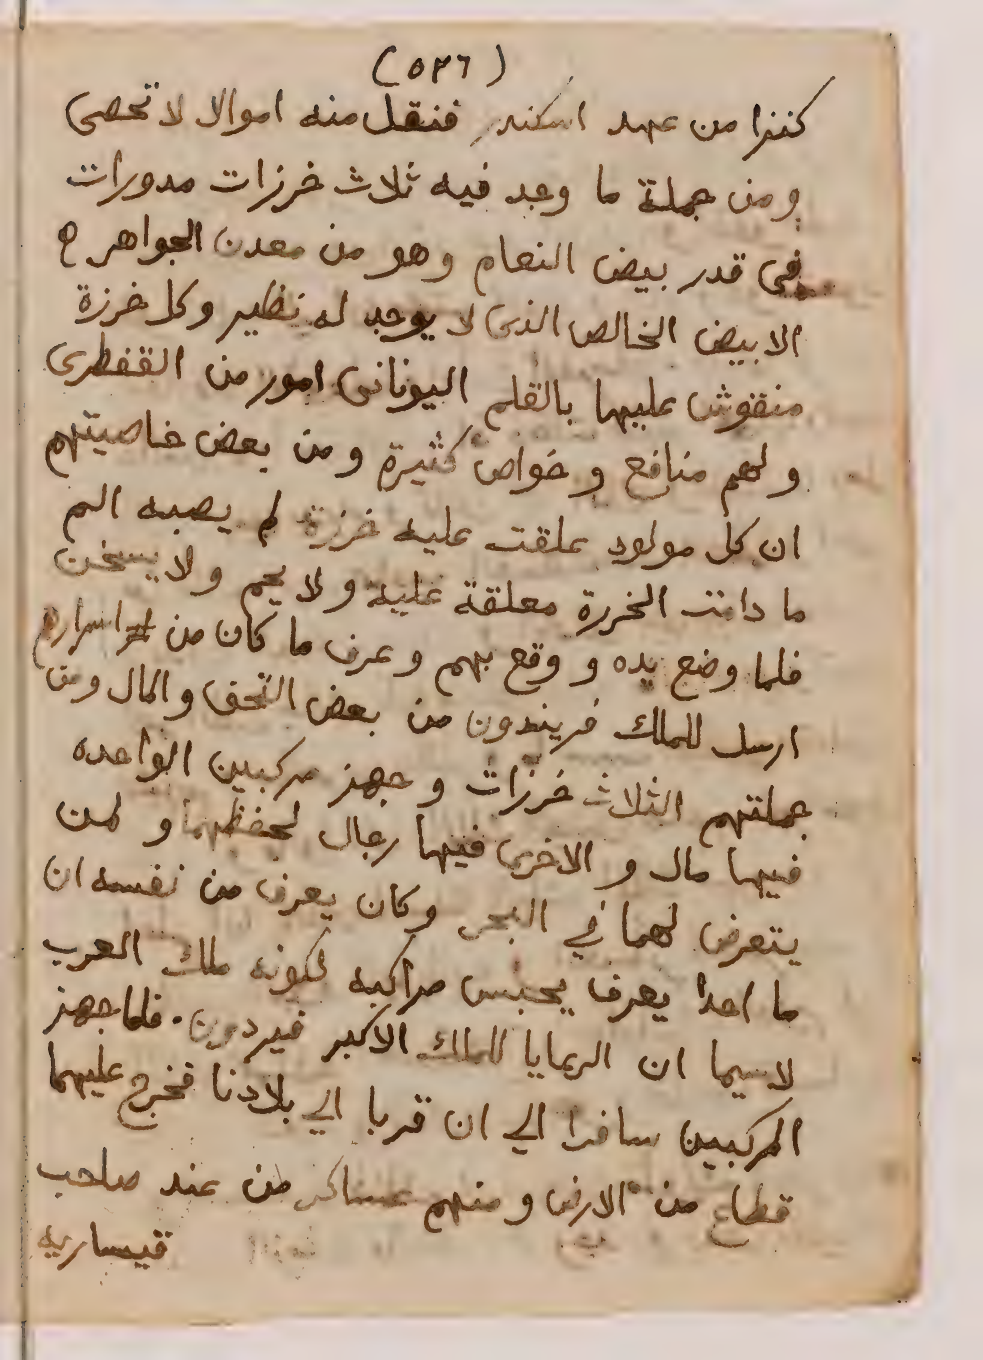 (٥٢٦)
كنزا من عهد اسكندر فنقل منه اموالا لا تحصى
ومن جملة ما وجد فيه ثلاث خرزات مدورات
في قدر بيض النعام وهو من معدن الجواهر ح
الابيض الخالص الذي لا يوجد له نظير وكل خرزة
منقوش عليها بالقلم اليوناني امور من القفطرى
ولهم منافع وخواص كثيرة ومن بعض خاصيتهم
ان كل مولود علقت عليه خرزة لم يصبه الم
ما دامت الخررة معلقة عليه ولا يحم ولا يسخن
فلما وضع يده ووقع بهم وعرف ما كان من اسرارهم
ارسل للملك فريندون من بعض التحف والمال ومن
جملتهم الثلاث خرزات وجهز مركبين الواحده
فيها مال والاخرى فيها رجال لحفظهما ولمن
يتعرض لهما في البحر وكان يعرف من نفسه ان
ما احدا يعرف يحبس مراكبه لكونه ملك العرب
لاسيما ان الرعايا للملك الاكبر فيردون. فلما جهز
المركبين سافرا الي ان قربا الي بلادنا فخرج عليهما
قطاع من الارض ومنهم عساكر من عند صاحب
قيساريه